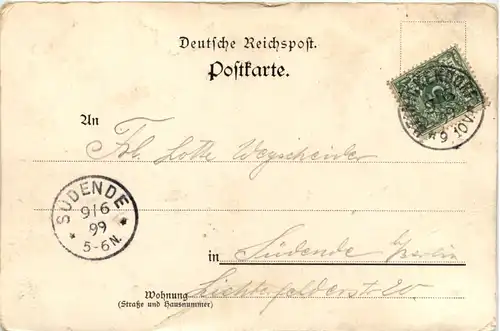 Deutsche Reichspost.
Postkarte.
An
Frl. Lotte Weyscheider
SÜDENDE
9/6
99
5-6N.
in Südende b/Berlin
Wohnung Lichterfelderstr 20
(Straße und Hausnummer)